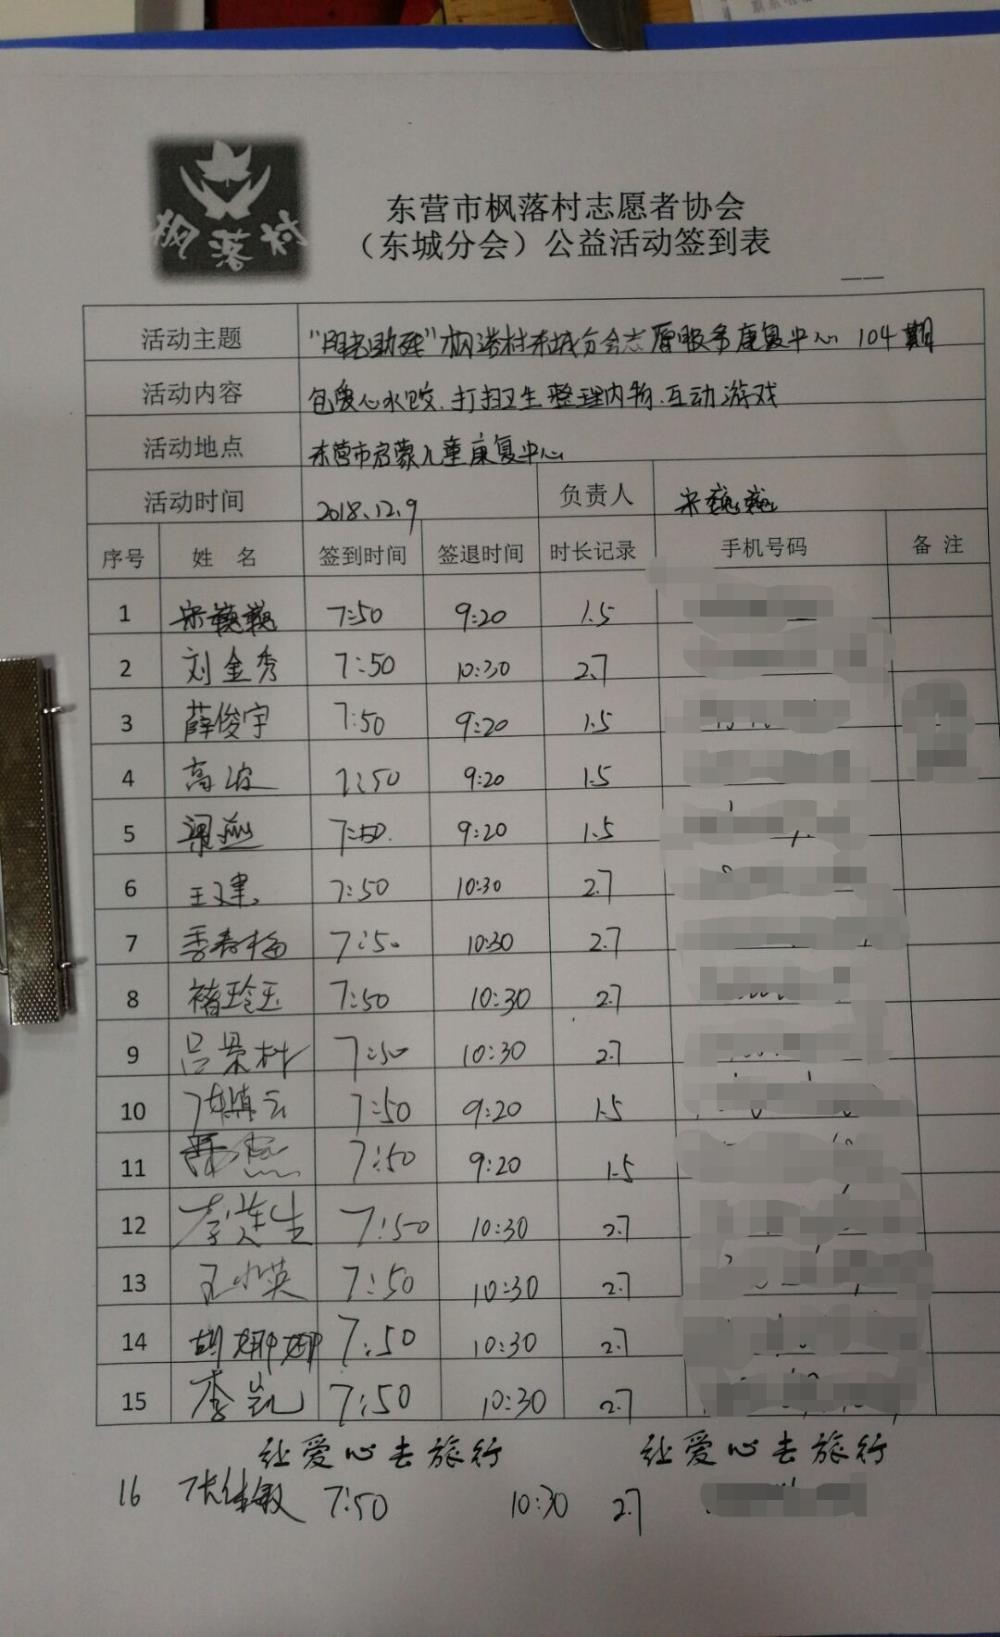 枫落村
东营市枫落村志愿者协会
（东城分会）公益活动签到表
活动主题 "阳光助残"枫落村东城分会志愿服务康复中心 104期
活动内容 包爱心水饺、打扫卫生 整理内务、互动游戏
活动地点 东营市启蒙儿童康复中心
活动时间 2018.12.9 负责人 宋巍巍
序号 姓 名 签到时间 签退时间 时长记录 手机号码 备 注
1 宋巍巍 7:50 9:20 1.5
2 刘金秀 7:50 10:30 2.7
3 薛俊宇 7:50 9:20 1.5
4 高波 7:50 9:20 1.5
5 梁燕 7:50 9:20 1.5
6 王建 7:50 10:30 2.7
7 季春梅 7:50 10:30 2.7
8 褚玲玉 7:50 10:30 2.7
9 吕景村 7:50 10:30 2.7
10 7:50 9:20 1.5
11 7:50 9:20 1.5
12 李莲生 7:50 10:30 2.7
13 王小英 7:50 10:30 2.7
14 胡娜娜 7:50 10:30 2.7
15 李凯 7:50 10:30 2.7
让爱心去旅行 让爱心去旅行
16 张佳敏 7:50 10:30 2.7